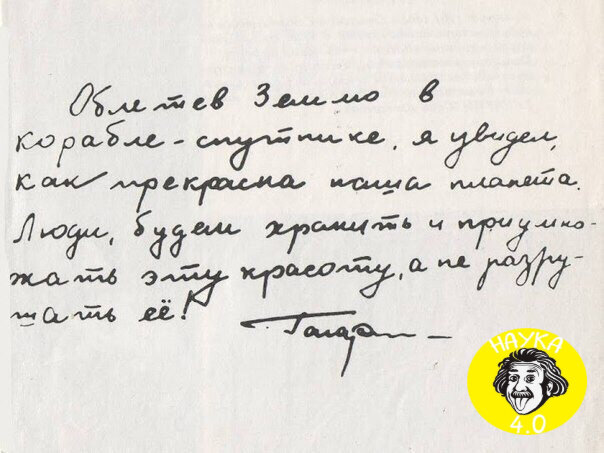 Облетев Землю в
корабле-спутнике, я увидел,
как прекрасна наша планета.
Люди, будем хранить и приумно-
жать эту красоту, а не разру-
шать её!
Гагарин
НАУКА
4.0